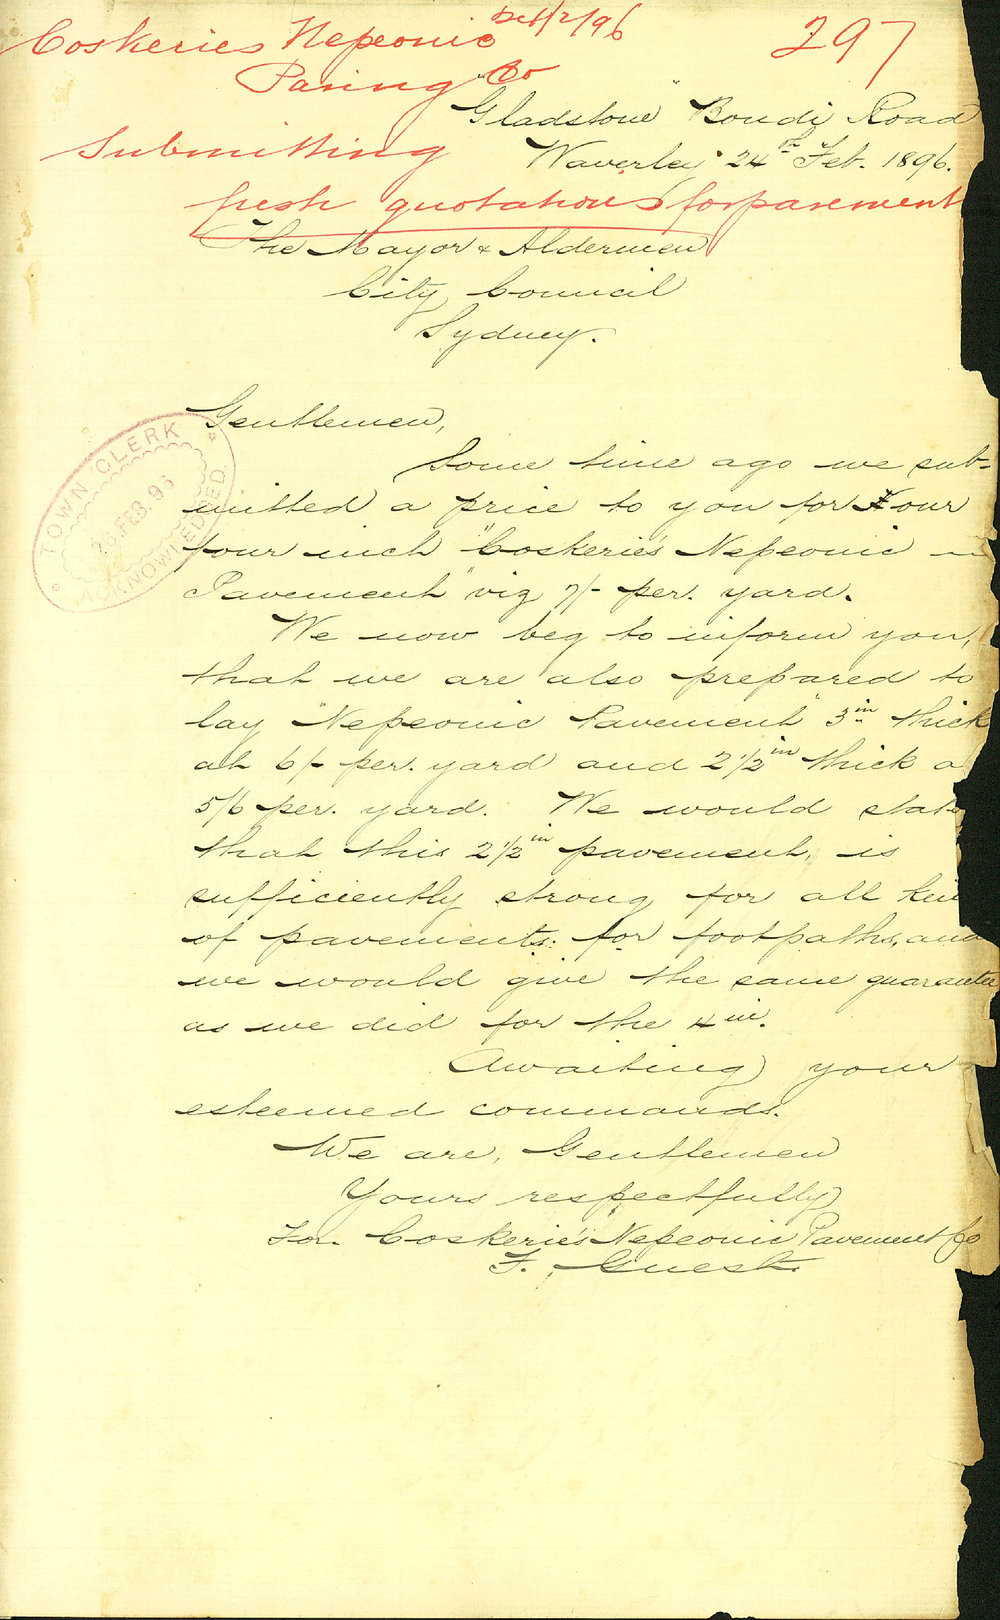 Coskeries Nepeonic
Paving Co
297
Submitting
fresh quotations for pavement
"Gladstone" Bondi Road
Waverley 24th Feb. 1896.
The Mayor & Aldermen
City Council
Sydney.
TOWN CLERK
FEB. 96
ACKNOWLEDGED
Gentlemen,
Some time ago we sub-
mitted a price to you for our
four inch "Coskerie's Nepeonic
Pavement" viz 7/- per. yard.
We now beg to inform you,
that we are also prepared to
lay "Nepeonic Pavement" 3in thick
at 6/- per. yard and 2 1/2in thick a
5/6 per. yard. We would state
that this 2 1/2in pavement, is
sufficiently strong for all kin
of pavements for footpaths, and
we would give the same guarantee
as we did for the 4in.
Awaiting your
esteemed commands.
We are, Gentlemen
Yours respectfully
For. Coskerie's Nepeonic Pavement Co
F. Guest.